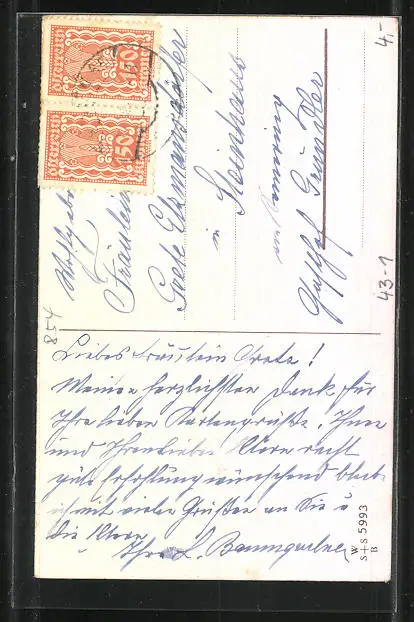 4,-
150
ÖSTERREICH
150
ÖSTERREICH
Wohlgeb.
Fräulein
Grete
in
Steinhaus
am Semmering
Gasthof
43-1
854
Liebes Fräulein Grete!
Meinen herzlichsten Dank für
Ihre lieben Kartengrüße. Ihnen
und Ihren lieben Eltern recht
gute Erholung wünschend bleibe
ich mit vielen Grüßen an Sie u
die Eltern
Ihre L. Baumgartner
W
S+S 5993
B